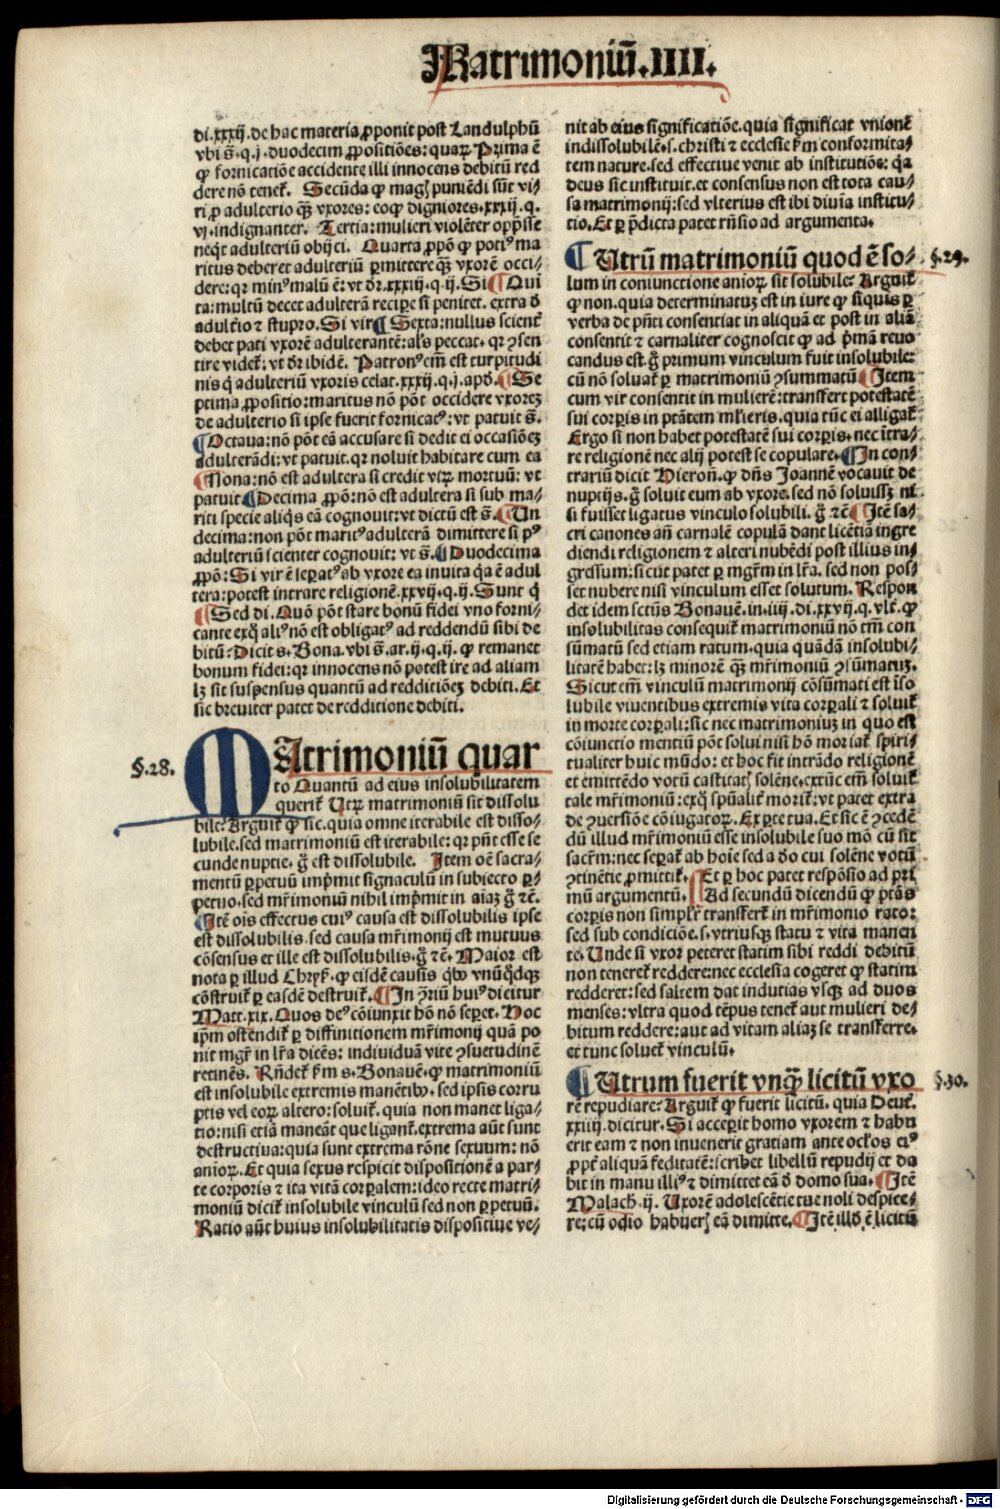 Matrimoniū.IIII.
di.xxxij.de hac materia ꝓponit post Landulphū
vbi s̄.q.j.duodecim ꝓpositiões:quaꝝ Prima ē
ꝙ fornicatiōe accidente illi innocens debitū red
dere nō tenet̄. Secūda ꝙ magꝭ puniēdi sūt vi/
ri ꝓ adulterio ꝙ̄ vxores:eoꝙ digniores.xxxij.q.
vj.indignanter. Tertia:mulieri violēter opp̄sse
neqͥt adulteriū obijci. Quarta ꝓpō ꝙ potiꝰ ma
ritus deberet adulteriū ꝑmittere ꝙ̄ vxorē occi/
dere:qr minꝰ malū ē:vt dr̄.xxxiij.q.ij.Si ¶ Qui
ta:multū decet adulterā recipe si penitet.extra d̄
adult̄io ⁊ stupro.Si vir ¶ Sexta:nullus scient̄
debet pati vxorē adulterantē:al̄s peccat.qr ꝯsen
tire videt̄:vt dr̄ ibidē. Patronꝰ em̄ est turpitudi
nis q̄ adulteriū vxoris celat.xxxij.q.j.apd̄. ¶ Se
ptima ꝓpositio:maritus nō pōt occidere vxorēꝫ
de adulterio si ipse fuerit fornicatꝰ:vt patuit s̄.
¶ Octaua:nō pōt eā accusare si dedit ei occasiōeꝫ
adulterādi:vt patuit.qr noluit habitare cum ea
¶ Nona:nō est adultera si credit viꝝ mortuū:vt
patuit ¶ Decima ꝓpō:nō est adultera si sub ma/
riti specie aliqͥs eā cognouit:vt dictū est s̄. ¶ Un
decima:non pōt maritꝰ adulterā dimittere si pꝰ
adulteriū scienter cognouit:vt s̄. ¶ Duodecima
ꝓpō:Si vir ē sepatꝰ ab vxore ea inuita qͥa ē adul
tera:potest intrare religionē.xxvij.q.ij.Sunt q̄
¶ Sed di.Quō pōt stare bonū fidei vno forni/
cante exq̄ aliꝰ nō est obligatꝰ ad reddendū sibi de
bitū:Dicit s.Bona.vbi s̄.ar.ij.q.ij.ꝙ remanet
bonum fidei:qr innocens nō potest ire ad aliam
lꝫ sit suspensus quantū ad redditiōeꝫ debiti.Et
sic breuiter patet de redditione debiti.
§.28.
MAtrimoniū quar
to Quantū ad eius insolubilitatem
querit̄ Utꝝ matrimoniū sit dissolu
bile:Arguit̄ ꝙ sic.quia omne iterabile est disso/
lubile.sed matrimoniū est iterabile:qr pn̄t esse se
cunde nuptie.g̊ est dissolubile. Item oē sacra/
mentū ꝑpetuū imp̄mit signaculū in subiecto ꝑ/
petuo.sed mr̄imoniū nihil imp̄mit in aīaꝫ g̊ ⁊c̄.
¶ Itē oīs effectus cuiꝰ causa est dissolubilis ipse
est dissolubilis.sed causa mr̄imonij est mutuus
cōsensus et ille est dissolubilis.g̊ ⁊c̄. Maior est
nota ꝑ illud Chrys̄.ꝙ eisdē causis qͥbꝰ vnūqͦdqꝫ
cōstruit̄ ꝑ easdē destruit̄. ¶ In ꝯriū huiꝰ dicitur
Matt.xix.Quos deꝰ cōiunxit hō nō sepet. Hoc
ip̄m ostendit̄ ꝑ diffinitionem mr̄imonij quā po
nit mgr̄ in lr̄a dicēs: indiuiduā vite ꝯsuetudinē
retinēs. Rn̄det̄ ẜm s.Bonauē.ꝙ matrimoniū
est insolubile extremis manētibꝰ.sed ipsis corru
ptis vel eoꝝ altero:soluit̄.quia non manet liga/
tio:nisi etiā maneāt que ligant̄.extrema aūt sunt
destructiua:quia sunt extrema rōne sexuum: nō
anioꝝ.Et quia sexus respicit dispositionē a par/
te corporis ⁊ ita vitā corꝑalem:ideo recte matri/
moniū dicit̄ insolubile vinculū sed non ꝑpetuū.
Ratio aūt huius insolubilitatis dispositiue ve/
nit ab eius significatiōe.quia significat vnionē
indissolubilē.s.christi ⁊ ecclesie ẜm conformita/
tem nature.sed effectiue venit ab institutiōe: qͥa
deus sic instituit.et consensus non est tota cau/
sa matrimonij:sed vlterius est ibi diuīa institu/
tio.Et ꝑ p̄dicta patet rn̄sio ad argumenta.
¶ Utrū matrimoniū quod ē so/
§.29.
lum in coniunctione anioꝝ sit solubile: Arguit̄
ꝙ non.quia determinatuꝫ est in iure ꝙ siquis ꝑ
verba de pn̄ti consentiat in aliquā et post in aliā
consentit ⁊ carnaliter cognoscit ꝙ ad p̄mā reuo
candus est.g̊ primum vinculum fuit insolubile:
cū nō soluat̄ ꝑ matrimoniū ꝯsummatū ¶ Item
cum vir consentit in mulierē:transfert potestatē
sui corꝑis in ptātem ml̄ieris.quia tūc ei alligat̄
Ergo si non habet potestatē sui corꝑis.nec itra/
re religionē nec alij potest se copulare. ¶ In con/
trariū dicit Hieron̄.ꝙ dn̄s Joannē vocauit de
nuptijs.g̊ soluit eum ab vxore.sed nō soluissꝫ ni
si fuisset ligatus vinculo solubili.g̊ ⁊c̄ ¶ Itē sa/
cri canones an̄ carnalē copulā dant licētiā ingre
diendi religionem ⁊ alteri nubēdi post illius in/
gressum:sicut patet ꝑ mgr̄m in lr̄a.sed non pos/
set nubere nisi vinculum esset solutum. Respon
det idem sctūs Bonauē.in.iiij.di.xxvij.q.vlt̄.ꝙ
insolubilitas consequit̄ matrimoniū nō tm̄ con
sūmatū sed etiam ratum.quia quādā insolubi/
litatē habet:lꝫ minorē ꝙ̄ mr̄imoniū ꝯsūmatuꝫ.
Sicut em̄ vinculū matrimonij cōsūmati est īso
lubile viuentibus extremis vita corꝑali ⁊ soluit̄
in morte corꝑali:sic nec matrimoniuꝫ in quo est
cōiunctio mentiū pōt solui nisi hō moriat̄ spiri/
tualiter huic mūdo: et hoc fit intrādo religionē
et emittēdo votū castitatꝭ solēne.extūc em̄ soluit̄
tale mr̄imoniū:exq̄ sp̄ualit̄ morit̄:vt patet extra
de ꝯuersiōe cōiugatoꝝ.Ex ꝑte tua.Et sic ē ꝯcedē
dū illud mr̄imoniū esse insolubile suo mō cū sit
sacr̄m:nec sepat̄ ab hoīe sed a deo cui solēne votū
ꝯtinētie ꝓmittit̄. ¶ Et ꝑ hoc patet respōsio ad pri
mū argumentū. ¶ Ad secundū dicendū ꝙ ptās
corꝑis non simplr̄ transfert̄ in mr̄imonio rato:
sed sub condiciōe.s.vtriusqꝫ statu ⁊ vita manen
te.Unde si vxor peteret statim sibi reddi debitū
non teneret̄ reddere:nec ecclesia cogeret ꝙ statim
redderet:sed saltem dat indutias vsqꝫ ad duos
menses:vltra quod tēpus tenet̄ aut mulieri de/
bitum reddere:aut ad vitam aliaꝫ se transferre.
et tunc soluet̄ vinculū.
¶ Utrum fuerit vnꝙ̄ licitū vxo
§.30.
rē repudiare:Arguit̄ ꝙ fuerit licitū. quia Deut̄.
xxiiij.dicitur.Si acceperit homo vxorem ⁊ habu
erit eam ⁊ non inuenerit gratiam ante ocl̄os eiꝰ
ꝓpt̄ aliquā feditatē:scribet libellū repudij et da
bit in manu illiꝰ ⁊ dimittet eā d̄ domo sua. ¶ Itē
Malach.ij. Uxorē adolescētie tue noli despice/
re:cū odio habuerꝭ eā dimitte. ¶ Itē illd̄ ē licitū
Digitalisierung gefördert durch die Deutsche Forschungsgemeinschaft - DFG